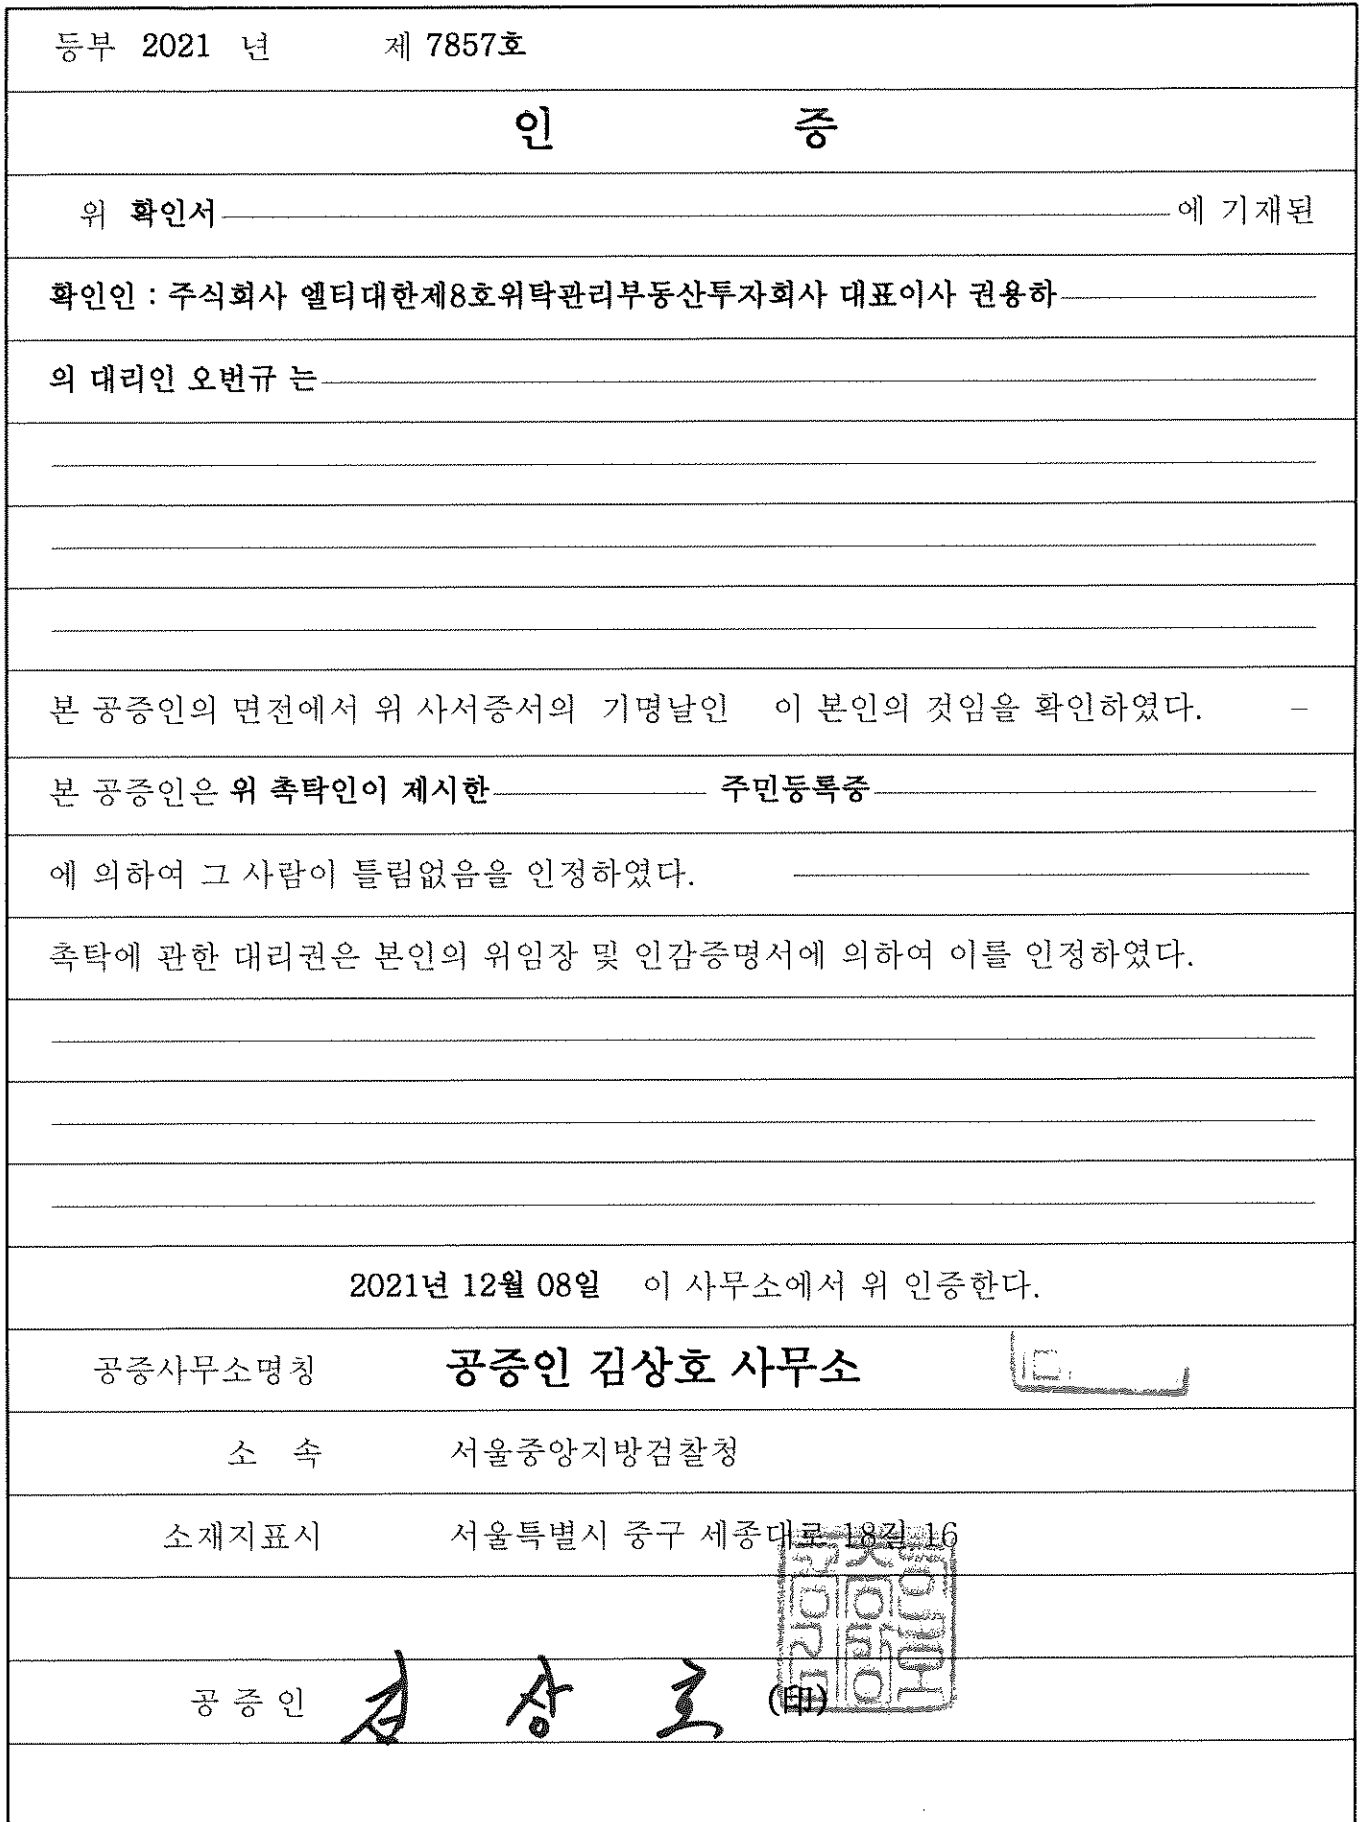 등부 2021 년 제 7857호
인 증
위 확인서 에 기재된
확인인 : 주식회사 엘티대한제8호위탁관리부동산투자회사 대표이사 권용하
의 대리인 오번규 는
본 공증인의 면전에서 위 사서증서의 기명날인 이 본인의 것임을 확인하였다. –
본 공증인은 위 촉탁인이 제시한 주민등록증
에 의하여 그 사람이 틀림없음을 인정하였다.
촉탁에 관한 대리권은 본인의 위임장 및 인감증명서에 의하여 이를 인정하였다.
2021년 12월 08일 이 사무소에서 위 인증한다.
공증사무소명칭 공증인 김상호 사무소
소 속 서울중앙지방검찰청
소재지표시 서울특별시 중구 세종대로 18길, 16
공 증 인 김 상 호 (印)